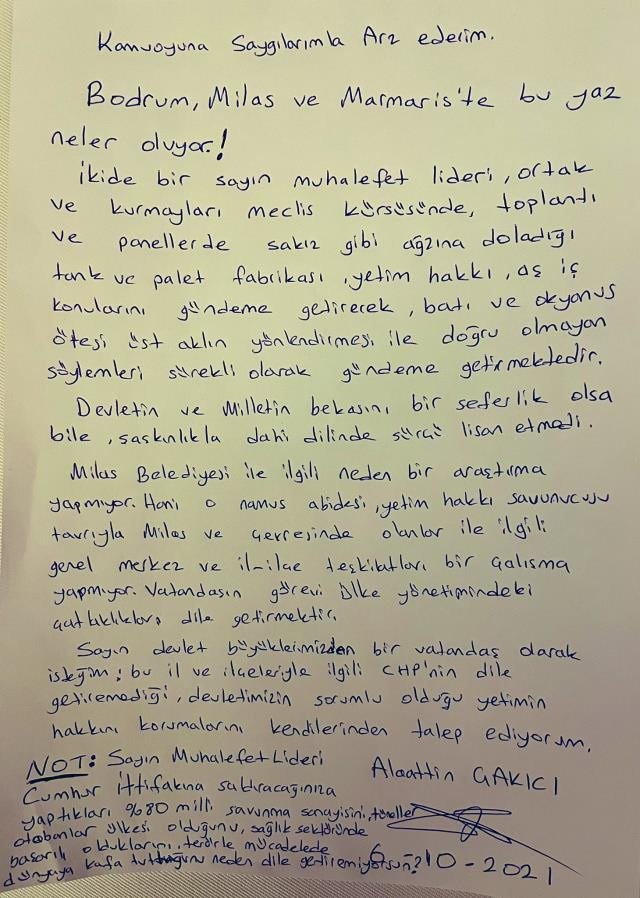 Kamuoyuna Saygılarımla Arz ederim.
Bodrum, Milas ve Marmaris'te bu yaz
neler oluyor.!
İkide bir sayın muhalefet lideri, ortak
ve kurmayları meclis kürsüsünde, toplantı
ve panellerde sakız gibi ağzına doladığı
tank ve palet fabrikası, yetim hakkı, aş iş
konularını gündeme getirecek, batı ve okyanus
ötesi üst aklın yönlendirmesi ile doğru olmayan
söylemleri sürekli olarak gündeme getirmektedir.
Devletin ve Milletin bekasını bir seferlik olsa
bile, saskınlıkla dahi dilinde sürçü lisan etmedi.
Milas Belediyesi ile ilgili neden bir araştırma
yapmıyor. Hani o namus abidesi, yetim hakkı savunucusu
tavrıyla Milas ve çevresinde olanlar ile ilgili
genel merkez ve il-ilçe teşkilatları bir çalışma
yapmıyor. Vatandaşın görevi ülke yönetimindeki
çatlaklıkları dile getirmektir.
Sayın devlet büyüklerimizden bir vatandaş olarak
isteğim; bu il ve ilçeleriyle ilgili CHP'nin dile
getiremediği, devletimizin sorumlu olduğu yetimin
hakkını korumalarını kendilerinden talep ediyorum.
NOT: Sayın Muhalefet Lideri
Alaattin ÇAKICI
Cumhur İttifakına saldıracağınıza
yaptıkları %80 milli savunma sanayisini, tüneller
otobanlar ülkesi olduğunu, sağlık sektöründe
başarılı olduklarını, terörle mücadelede
dünyaya kafa tuttuğunu neden dile getiremiyorsun?
6-10-2021